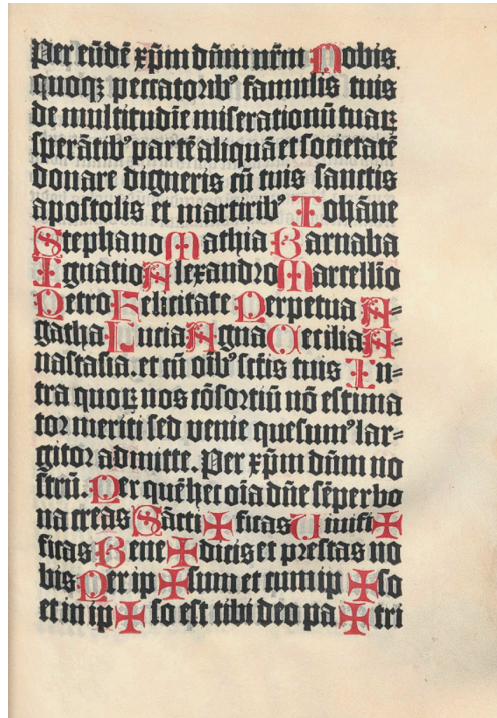 Per eūdē xp̄m dn̄m nr̄m Nobis.
quoqꝫ peccatoribꝰ famulis tuis
de multitudīe miserationū tuaꝝ
sperātibꝰ partē aliquā et societatē
donare digneris cū tuis sanctis
apostolis et martiribꝰ Iohāne
Stephano Mathia Barnaba
Ignatio Alexandro Marcellīo
Petro Felicitate Perpetua A⸗
gatha Lucia Agna Cecilia A⸗
nastasia. et cū oībꝰ sctīs tuis In⸗
tra quoꝝ nos cōsortiū nō estima
tor meriti sed venie quesumꝰ lar⸗
gitor admitte. Per xp̄m dn̄m no
strū. Per quē hec oīa dn̄e sēper bo
na creas Sācti ✠ ficas Uiuifi ✠
ficas Bene ✠ dicis et prestas no
bis Per ip ✠ sum et cum ip ✠ so
et in ip ✠ so est tibi deo pa ✠ tri